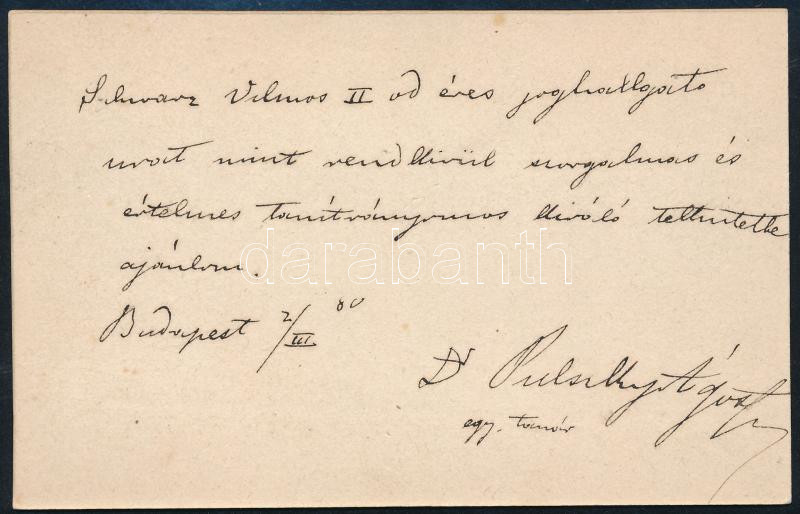 Schwarz Vilmos II od éves joghallgató
urat mint rendkivül szorgalmas és
értelmes tanítványomos kiváló tekintetbe
ajánlom.
Budapest 2/III 80
Dr Pulszky Ágost
egy. tanár
darabanth